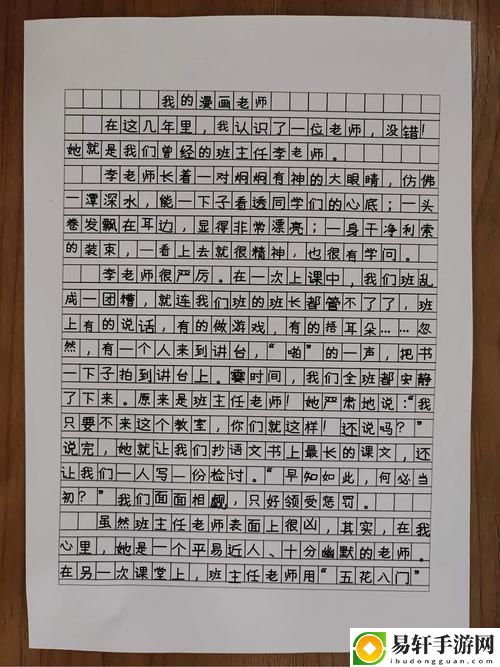 我的漫画老师
在这几年里，我认识了一位老师，没错！
她就是我们曾经的班主任李老师。
李老师长着一对炯炯有神的大眼睛，仿佛
一潭深水，能一下子看透同学们的心底；一头
卷发飘在耳边，显得非常漂亮；一身干净利索
的装束，一看上去就很精神，也很有学问。
李老师很严厉。在一次上课中，我们班乱
成一团糟，就连我们班的班长都管不了了，班
上有的说话，有的做游戏，有的捂耳朵……忽
然，有一个人来到讲台，“啪”的一声，把书
一下子拍到讲台上。霎时间，我们全班都安静
了下来。原来是班主任老师！她严肃地说：“我
只要不来这个教室，你们就这样！还说吗？”
说完，她就让我们抄语文书上最长的课文，还
让我们一人写一份检讨。“早知如此，何必当
初？”我们面面相觑，只好领受惩罚。
虽然班主任老师表面上很凶，其实，在我
心里，她是一个平易近人、十分幽默的老师。
在另一次课堂上，班主任老师用“五花八门”
易轩手游网
ibudongedu.com